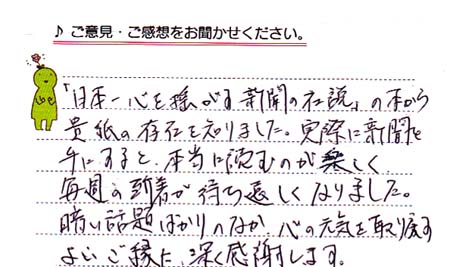 ♪ ご意見・ご感想をお聞かせください。
「日本一心を揺るがす新聞の社説」の本から
貴紙の存在を知りました。実際に新聞を
手にすると、本当に読むのが楽しく、
毎週の到着が待ち遠しくなりました。
暗い話題ばかりのなか、心の元気を取り戻す
よいご縁に、深く感謝します。